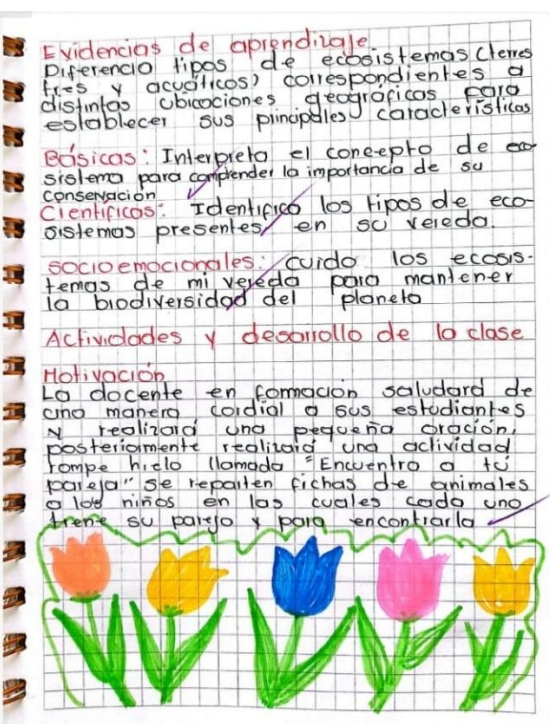 Evidencias de aprendizaje
Diferencio tipos de ecosistemas (terres
tres y acuáticos) correspondientes a
distintas ubicaciones geográficas para
establecer sus pincipales características
Básicas: Interpreta el concepto de eco
sistema para comprender la importancia de su
conservación
Científicas: Identifico los tipos de eco-
sistemas presentes en su vereda.
socioemocionales: cuido los ecosis-
temas de mi vereda para mantener
la biodiversidad del planeta
Actividades y desarrollo de la clase
Motivación
La docente en formación saludará de
una manera cordial a sus estudiantes
y realizará una pequeña oración,
posteriormente realizará una actividad
rompe hielo llamada "Encuentro a tú
pareja" se reparten fichas de animales
a los niños en las cuales cada uno
tiene su pareja y para encontrarla